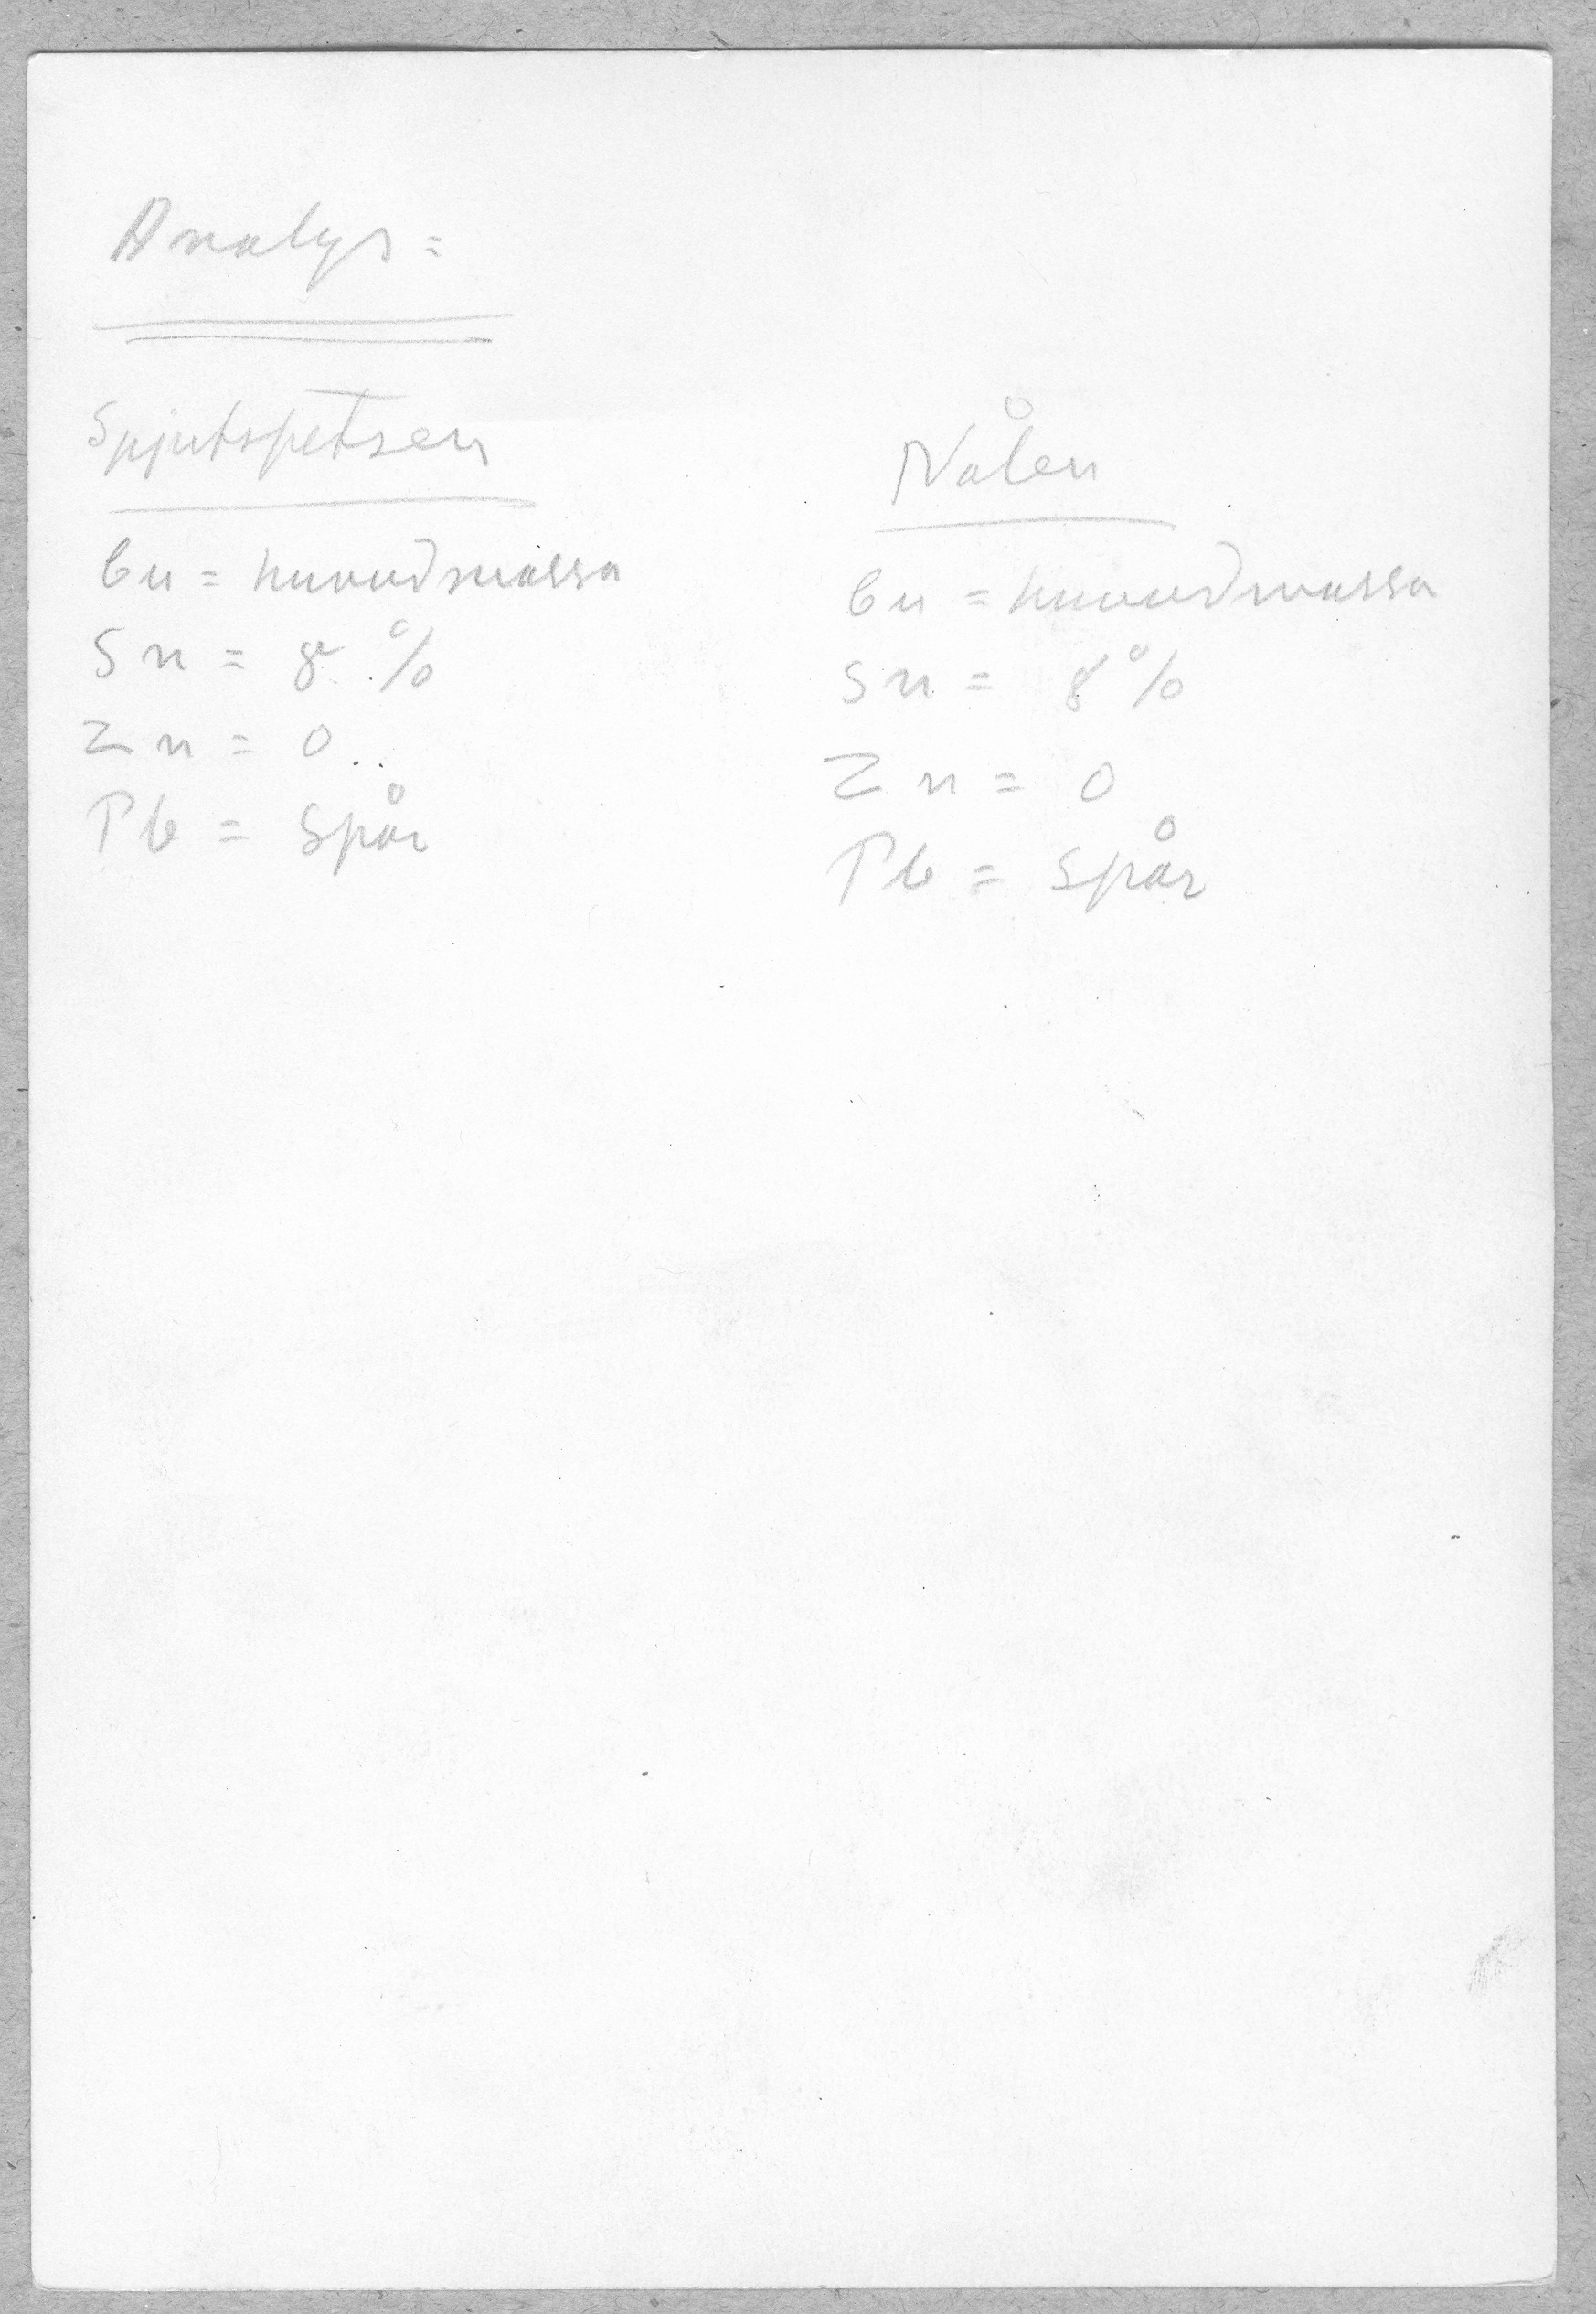 Analys:
Spjutspetsen
Cu = huvudmassa
Sn = 8 %
Zn = 0
Pb = Spår
Nålen
Cu = huvudmassa
Sn = 8 %
Zn = 0
Pb = Spår